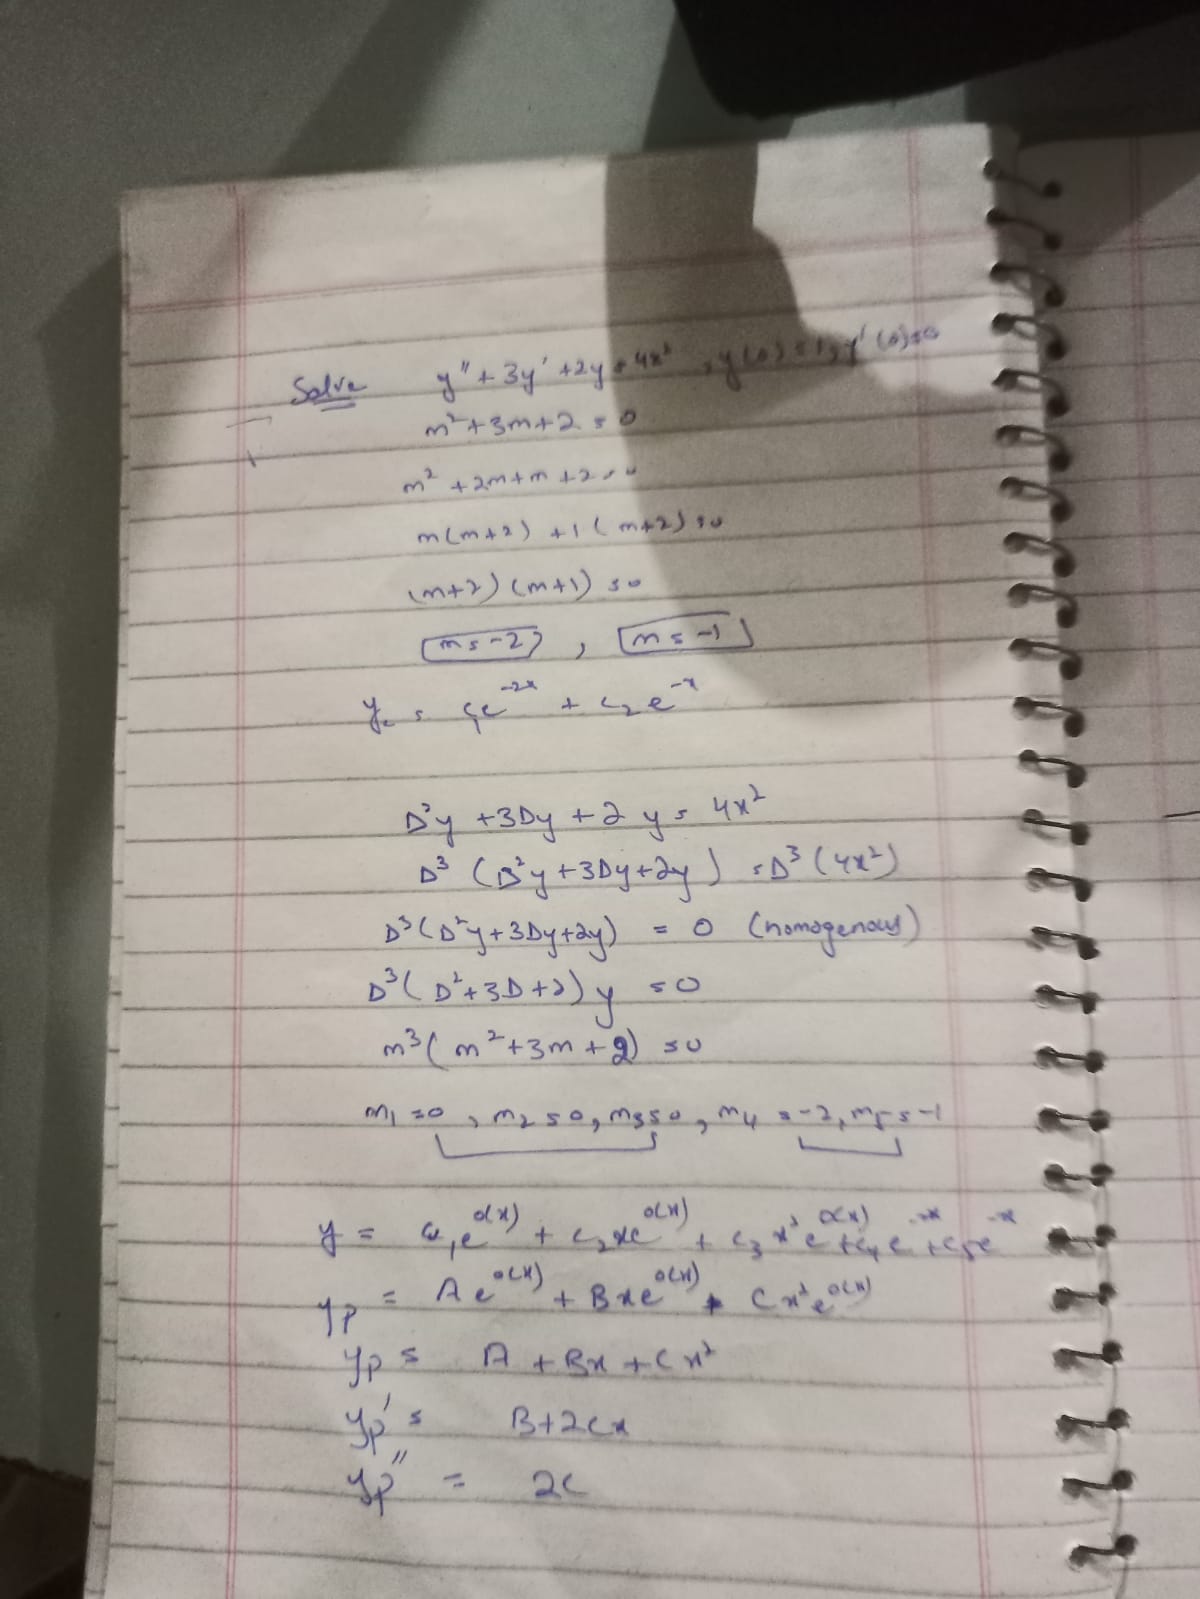 Solve y" + 3y' + 2y = 4x² , y(0) = 1, y'(0) = 0
m² + 3m + 2 = 0
m² + 2m + m + 2 = 0
m(m+2) + 1(m+2) = 0
(m+2)(m+1) = 0
m = -2 , m = -1
y_c = c₁e^{-2x} + c₂e^{-x}
D²y + 3Dy + 2y = 4x²
D³(D²y + 3Dy + 2y) = D³(4x²)
D³(D²y + 3Dy + 2y) = 0 (homogenous)
D³(D² + 3D + 2)y = 0
m³(m² + 3m + 2) = 0
m₁ = 0, m₂ = 0, m₃ = 0, m₄ = -2, m₅ = -1
y = c₁e^{0(x)} + c₂xe^{0(x)} + c₃x²e^{0(x)} + c₄e^{-2x} + c₅e^{-x}
yp = Ae^{0(x)} + Bxe^{0(x)} + Cx²e^{0(x)}
yp = A + Bx + Cx²
yp' = B + 2Cx
yp" = 2C